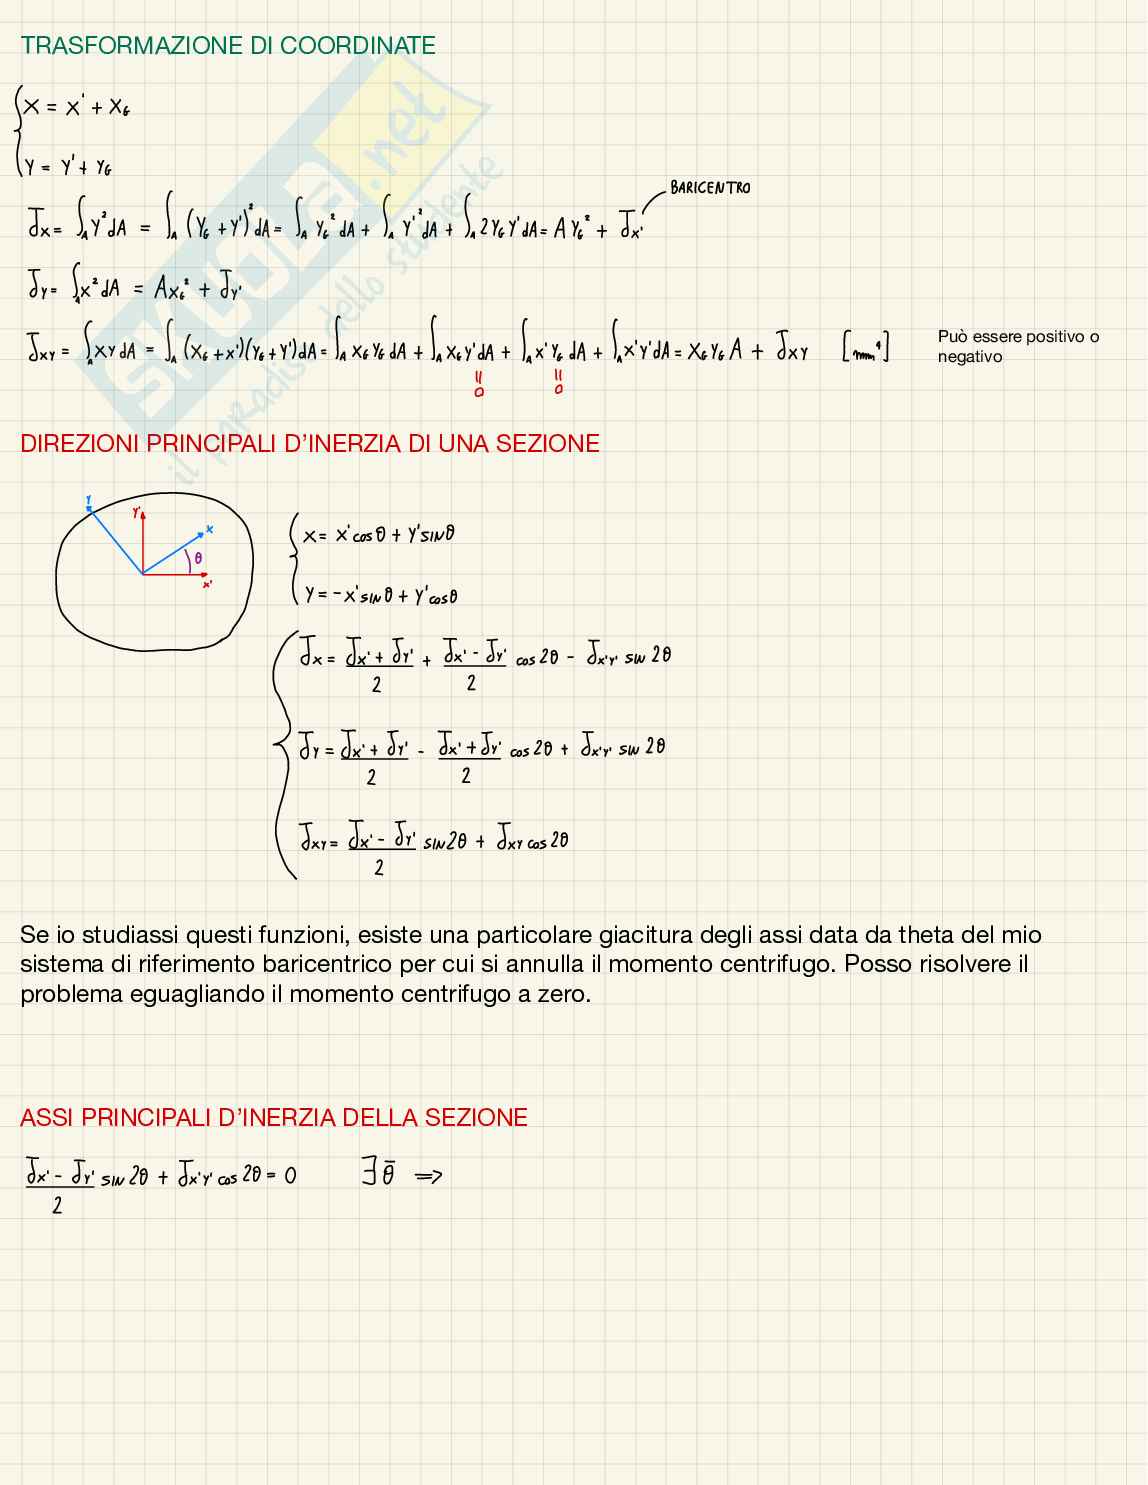 TRASFORMAZIONE DI COORDINATE
SKUOLA.net
il paradiso dello studente
{ X = X' + X_G
Y = Y' + Y_G
BARICENTRO
J_X = ∫_A Y² dA = ∫_A (Y_G + Y')² dA = ∫_A Y_G² dA + ∫_A Y'² dA + ∫_A 2 Y_G Y' dA = A Y_G² + J_X'
J_Y = ∫_A X² dA = A X_G² + J_Y'
J_XY = ∫_A XY dA = ∫_A (X_G + X')(Y_G + Y') dA = ∫_A X_G Y_G dA + ∫_A X_G Y' dA + ∫_A X' Y_G dA + ∫_A X'Y' dA = X_G Y_G A + J_XY [mm⁴]
Può essere positivo o
negativo
= 0 = 0
DIREZIONI PRINCIPALI D'INERZIA DI UNA SEZIONE
Y Y' X θ X'
{ X = X' cos θ + Y' SIN θ
Y = -X' SIN θ + Y' cos θ
{ J_X = (J_X' + J_Y')/2 + (J_X' - J_Y')/2 cos 2θ - J_X'Y' SIN 2θ
J_Y = (J_X' + J_Y')/2 - (J_X' + J_Y')/2 cos 2θ + J_X'Y' SIN 2θ
J_XY = (J_X' - J_Y')/2 SIN 2θ + J_XY cos 2θ
Se io studiassi questi funzioni, esiste una particolare giacitura degli assi data da theta del mio
sistema di riferimento baricentrico per cui si annulla il momento centrifugo. Posso risolvere il
problema eguagliando il momento centrifugo a zero.
ASSI PRINCIPALI D'INERZIA DELLA SEZIONE
(J_X' - J_Y')/2 SIN 2θ + J_X'Y' cos 2θ = 0 ∃ θ̄ ⇒